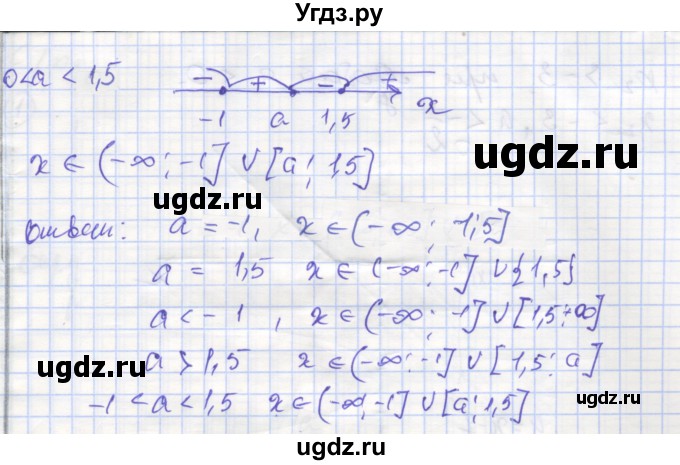 Угдз.ру
0<a < 1,5
- + - +
-1 a 1,5 x
x ∈ (-∞; -1] ∪ [a; 1,5]
ugdz.ru ugdz.ru
Ответ: a = -1, x ∈ (-∞; 1,5]
a = 1,5 x ∈ (-∞; -1] ∪ {1,5}
a < -1, x ∈ (-∞; -1] ∪ [1,5; +∞]
ugdz.ru ugdz.ru
a > 1,5 x ∈ (-∞; -1] ∪ [1,5; a]
-1 < a < 1,5 x ∈ (-∞; -1] ∪ [a; 1,5]
ugdz.ru